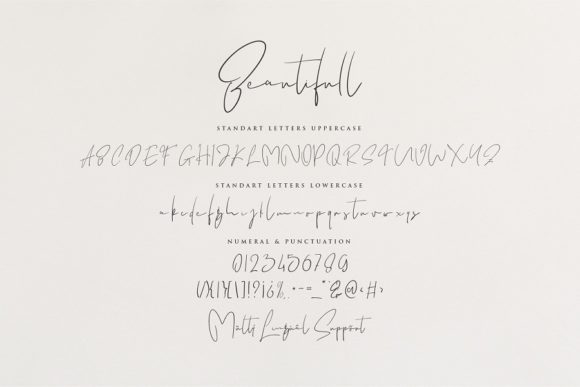 Beautifull
STANDART LETTERS UPPERCASE
ABCDEFGHIJKLMNOPQRSTUVWXYZ
STANDART LETTERS LOWERCASE
abcdefghijklmnopqrstuvwxyz
NUMERAL & PUNCTUATION
0123456789
()[]!?¡¿%.,+-=_"&@‹›#
Multi Lingual Support